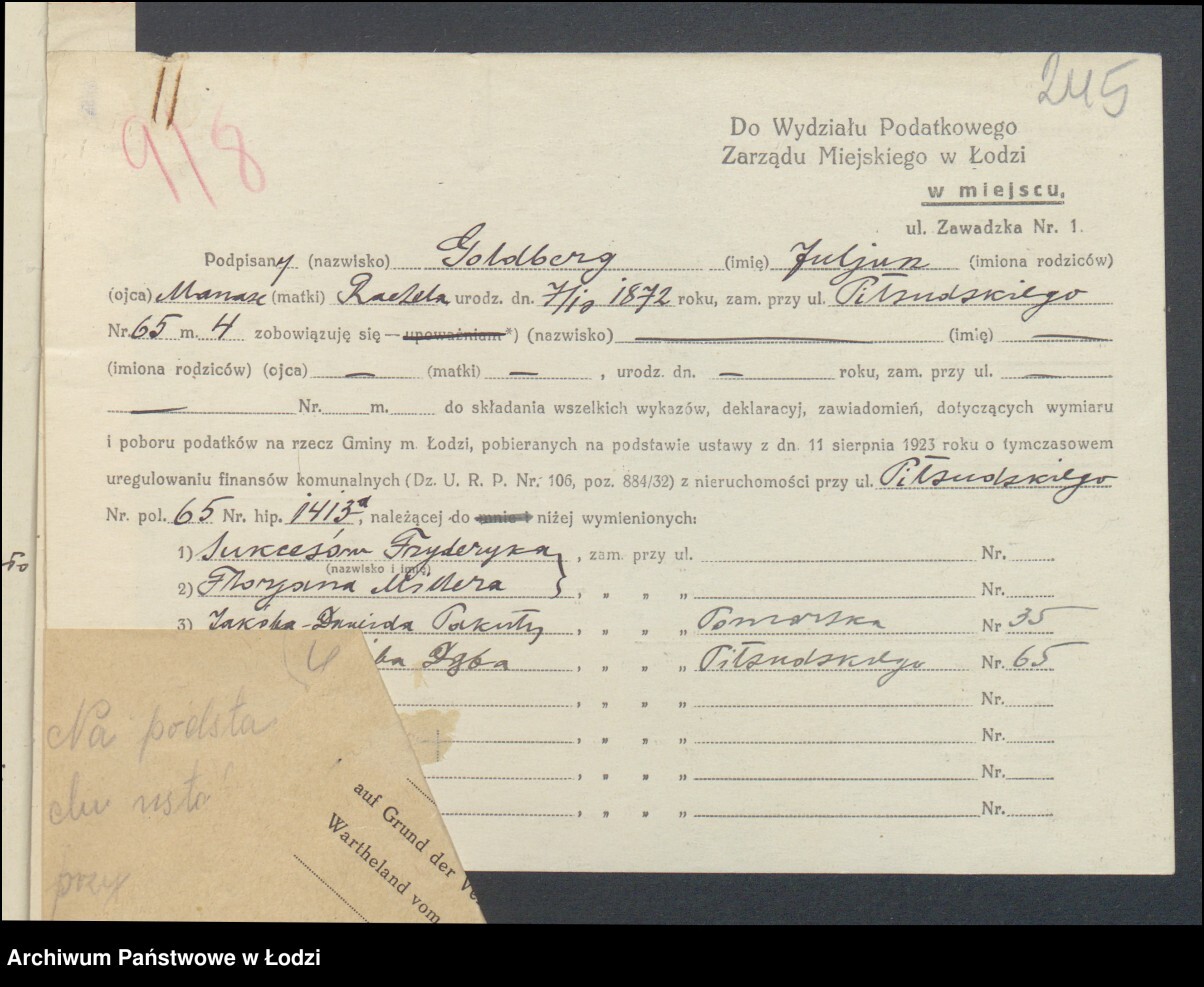 245
918
Do Wydziału Podatkowego
Zarządu Miejskiego w Łodzi
w miejscu,
ul. Zawadzka Nr. 1.
Podpisany (nazwisko) Goldberg (imię) Juljan (imiona rodziców)
(ojca) Manas (matki) Rachela urodz. dn. 7/10 1872 roku, zam. przy ul. Piłsudskiego
Nr. 65 m. 4 zobowiązuję się — upoważniam *) (nazwisko) — (imię) —
(imiona rodziców) (ojca) — (matki) — , urodz. dn. — roku, zam. przy ul. —
— Nr. m. do składania wszelkich wykazów, deklaracyj, zawiadomień, dotyczących wymiaru
i poboru podatków na rzecz Gminy m. Łodzi, pobieranych na podstawie ustawy z dn. 11 sierpnia 1923 roku o tymczasowem
uregulowaniu finansów komunalnych (Dz. U. R. P. Nr. 106, poz. 884/32) z nieruchomości przy ul. Piłsudskiego
Nr. pol. 65 Nr. hip. 1413a, należącej do mnie i niżej wymienionych:
1) Sukcesorów Fryderyka , zam. przy ul. Nr.
(nazwisko i imię)
2) Florjana Millera , „ „ „ Nr.
3) Jakóba-Dawida Pakuły , „ „ „ Pomorska Nr 35
ba Zyba , „ „ „ Piłsudskiego Nr. 65
, „ „ „ Nr.
, „ „ „ Nr.
, „ „ „ Nr.
, „ „ „ Nr.
Na podsta
przy
auf Grund der Ve
Wartheland vom
Archiwum Państwowe w Łodzi